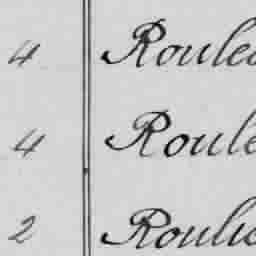 4 Roulea
4 Roule
2 Roulic